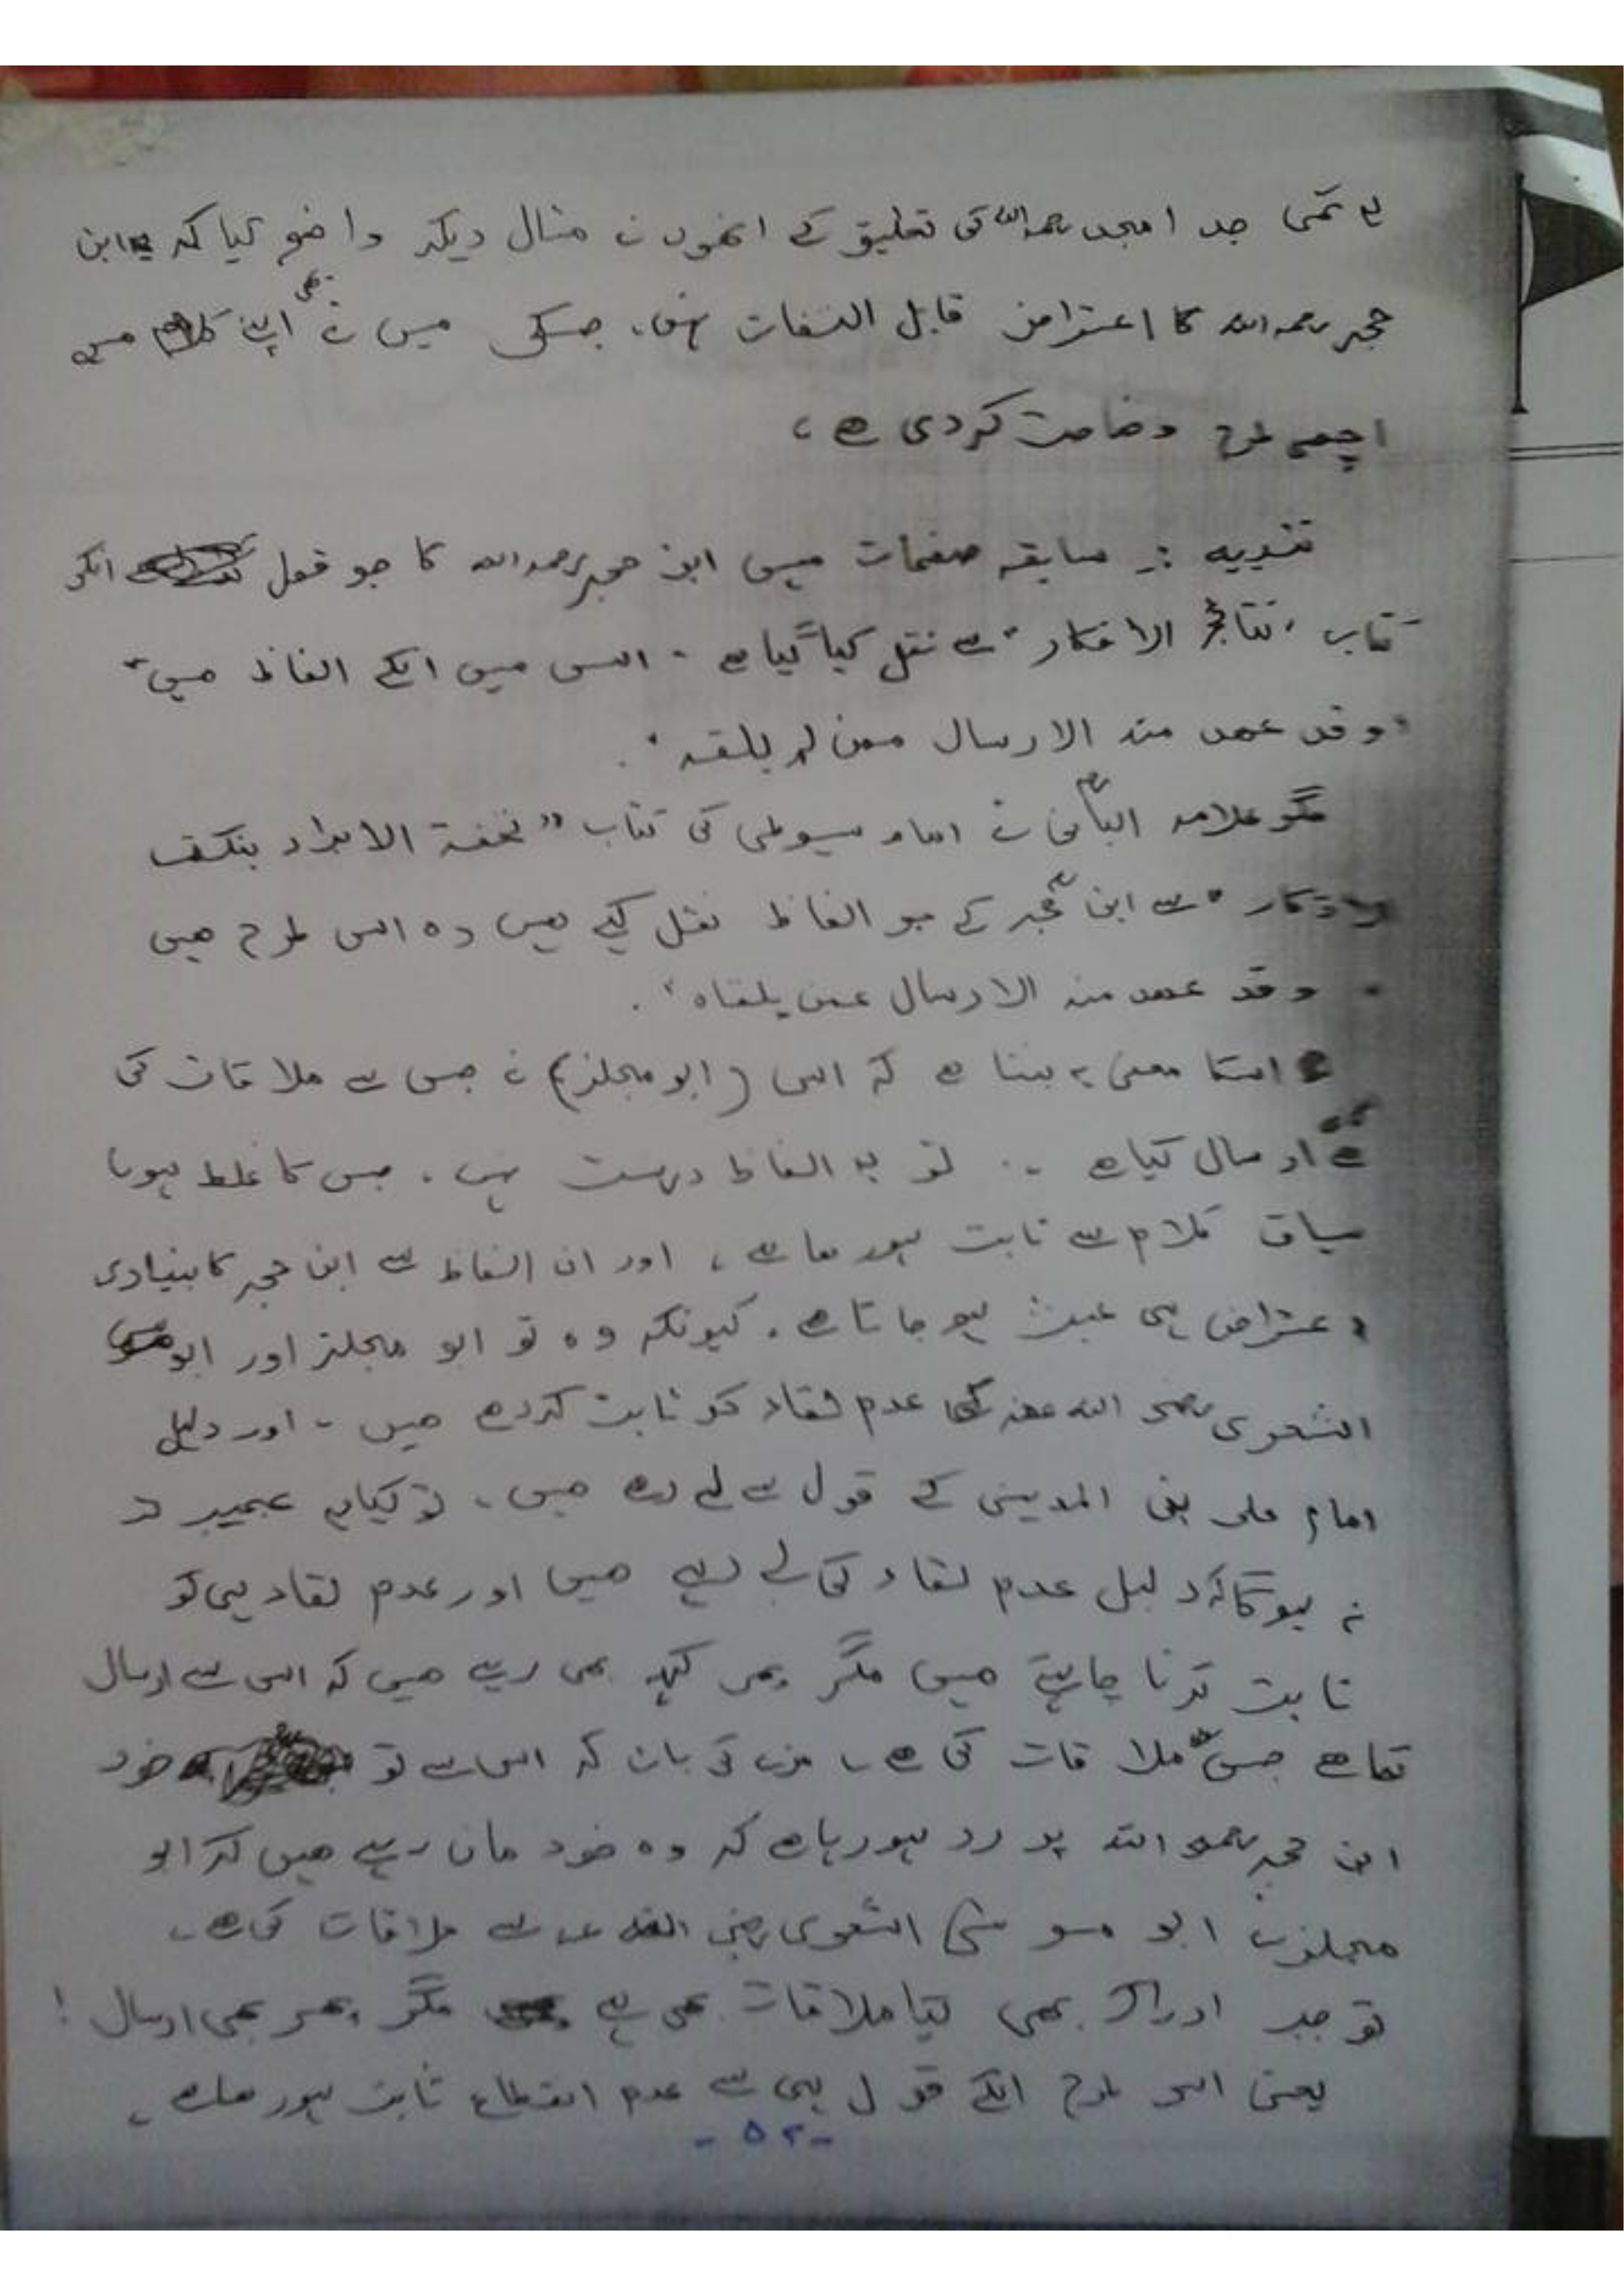 یہ تھی جد امجد رحمہ اللہ کی تعلیق کے انھوں نے مثال دیکر واضح کیا کہ ابن
حجر رحمہ اللہ کا اعتراض قابل التفات نہیں، جسکی میں نے بھی اپنے کلام میں
اچھی طرح وضاحت کردی ہے،
تنبیہ :۔ سابقہ صفحات میں ابن حجر رحمہ اللہ کا جو قول انکی
کتاب "نتائج الافکار" سے نقل کیا گیا ہے ۔ اس میں انکے الفاظ ہیں"
"وقد عھد منہ الارسال ممن لم یلقہ".
مگر علامہ البانیؒ نے امام سیوطی کی کتاب "تحفۃ الابرار بنکت
الاذکار" سے ابن حجرؒ کے جو الفاظ نقل کیے ہیں وہ اس طرح ہیں
" وقد عھد منہ الارسال عمن یلقاہ".
اسکا معنی یہ بنتا ہے کہ اس (ابو مجلز) نے جس سے ملاقات کی
ہے ارسال کیا ہے ۔. تو یہ الفاظ درست نہیں، جس کا غلط ہونا
سیاق کلام سے ثابت ہورھا ہے، اور ان الفاظ سے ابن حجر کا بنیادی
اعتراض ہی عبث ہو جاتا ہے. کیونکہ وہ تو ابو مجلز اور ابو موسی
اشعری رضی اللہ عنہ کا عدم لقاء کو ثابت کررہے ہیں ۔ اور دلیل
امام علی بن المدینی کے قول سے لے رہے ہیں، تو کیا یہ عجیب تر
نہ ہوگا کہ دلیل عدم لقاء کی لے رہے ہیں اور عدم لقاء ہی کو
ثابت کرنا چاہتے ہیں مگر پھر کہہ بھی رہے ہیں کہ اس سے ارسال
کیا ہے جس سے ملاقات کی ہے، مزے کی بات کہ اس سے تو خود
ابن حجر رحمہ اللہ پر رد ہورہا ہے کہ وہ خود مان رہے ہیں کہ ابو
مجلز نے ابو موسی اشعری رضی اللہ عنہ سے ملاقات کی ہے۔
تو جب ادراک بھی لقیا ملاقات بھی ہے مگر پھر بھی ارسال !
یعنی اس طرح انکے قول ہی سے عدم انقطاع ثابت ہورھا ہے،
-۵۲-